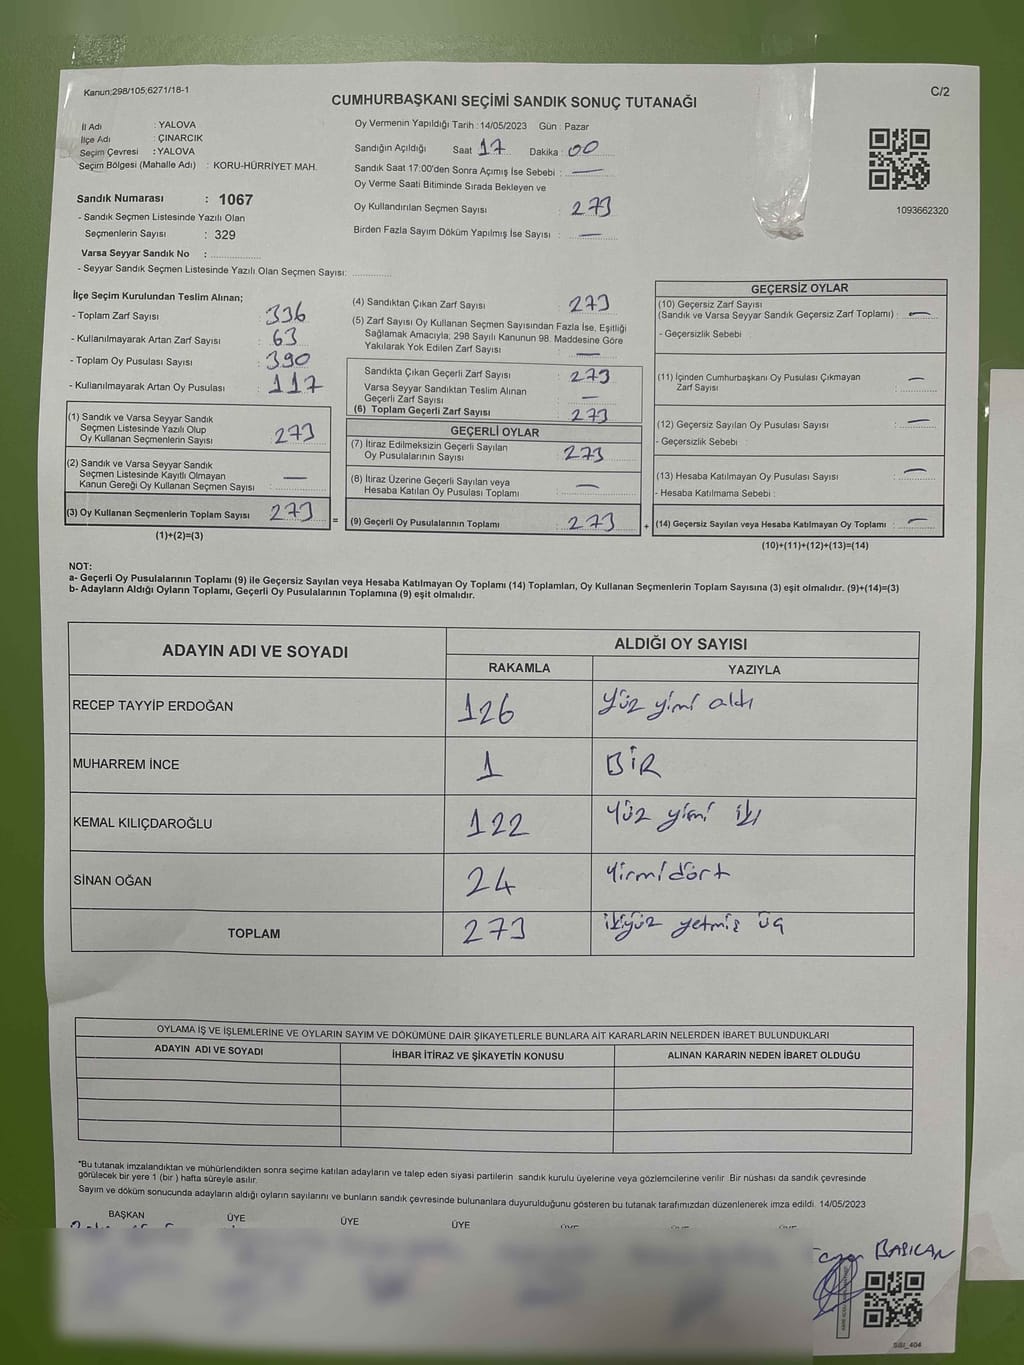 Kanun:298/105;6271/18-1
C/2
CUMHURBAŞKANI SEÇİMİ SANDIK SONUÇ TUTANAĞI
İl Adı : YALOVA
İlçe Adı : ÇINARCIK
Seçim Çevresi : YALOVA
Seçim Bölgesi (Mahalle Adı) : KORU-HÜRRİYET MAH.
Oy Vermenin Yapıldığı Tarih : 14/05/2023 Gün : Pazar
Sandığın Açıldığı Saat 17 Dakika : 00
Sandık Saat 17:00'den Sonra Açımış İse Sebebi : —
Oy Verme Saati Bitiminde Sırada Bekleyen ve
Oy Kullandırılan Seçmen Sayısı : 273
Birden Fazla Sayım Döküm Yapılmış İse Sayısı : —
1093662320
Sandık Numarası : 1067
- Sandık Seçmen Listesinde Yazılı Olan
Seçmenlerin Sayısı : 329
Varsa Seyyar Sandık No :
- Seyyar Sandık Seçmen Listesinde Yazılı Olan Seçmen Sayısı:
İlçe Seçim Kurulundan Teslim Alınan;
- Toplam Zarf Sayısı : 336
- Kullanılmayarak Artan Zarf Sayısı : 63
- Toplam Oy Pusulası Sayısı : 390
- Kullanılmayarak Artan Oy Pusulası : 117
(1) Sandık ve Varsa Seyyar Sandık
Seçmen Listesinde Yazılı Olup
Oy Kullanan Seçmenlerin Sayısı : 273
(2) Sandık ve Varsa Seyyar Sandık
Seçmen Listesinde Kayıtlı Olmayan
Kanun Gereği Oy Kullanan Seçmen Sayısı : —
(3) Oy Kullanan Seçmenlerin Toplam Sayısı 273
(1)+(2)=(3)
=
(4) Sandıktan Çıkan Zarf Sayısı : 273
(5) Zarf Sayısı Oy Kullanan Seçmen Sayısından Fazla İse, Eşitliği
Sağlamak Amacıyla, 298 Sayılı Kanunun 98. Maddesine Göre
Yakılarak Yok Edilen Zarf Sayısı : —
Sandıkta Çıkan Geçerli Zarf Sayısı : 273
Varsa Seyyar Sandıktan Teslim Alınan
Geçerli Zarf Sayısı : —
(6) Toplam Geçerli Zarf Sayısı : 273
GEÇERLİ OYLAR
(7) İtiraz Edilmeksizin Geçerli Sayılan
Oy Pusulalarının Sayısı : 273
(8) İtiraz Üzerine Geçerli Sayılan veya
Hesaba Katılan Oy Pusulası Toplamı : —
(9) Geçerli Oy Pusulalarının Toplamı : 273
+
GEÇERSİZ OYLAR
(10) Geçersiz Zarf Sayısı
(Sandık ve Varsa Seyyar Sandık Geçersiz Zarf Toplamı) : —
- Geçersizlik Sebebi :
(11) İçinden Cumhurbaşkanı Oy Pusulası Çıkmayan
Zarf Sayısı : —
(12) Geçersiz Sayılan Oy Pusulası Sayısı : —
- Geçersizlik Sebebi :
(13) Hesaba Katılmayan Oy Pusulası Sayısı : —
- Hesaba Katılmama Sebebi :
(14) Geçersiz Sayılan veya Hesaba Katılmayan Oy Toplamı : —
(10)+(11)+(12)+(13)=(14)
NOT:
a- Geçerli Oy Pusulalarının Toplamı (9) ile Geçersiz Sayılan veya Hesaba Katılmayan Oy Toplamı (14) Toplamları, Oy Kullanan Seçmenlerin Toplam Sayısına (3) eşit olmalıdır. (9)+(14)=(3)
b- Adayların Aldığı Oyların Toplamı, Geçerli Oy Pusulalarının Toplamına (9) eşit olmalıdır.
ADAYIN ADI VE SOYADI
ALDIĞI OY SAYISI
RAKAMLA YAZIYLA
RECEP TAYYİP ERDOĞAN 126 Yüz yirmi altı
MUHARREM İNCE 1 BİR
KEMAL KILIÇDAROĞLU 122 Yüz yirmi iki
SİNAN OĞAN 24 Yirmidört
TOPLAM 273 ikiyüz yetmiş üç
OYLAMA İŞ VE İŞLEMLERİNE VE OYLARIN SAYIM VE DÖKÜMÜNE DAİR ŞİKAYETLERLE BUNLARA AİT KARARLARIN NELERDEN İBARET BULUNDUKLARI
ADAYIN ADI VE SOYADI İHBAR İTİRAZ VE ŞİKAYETİN KONUSU ALINAN KARARIN NEDEN İBARET OLDUĞU
*Bu tutanak imzalandıktan ve mühürlendikten sonra seçime katılan adayların ve talep eden siyasi partilerin sandık kurulu üyelerine veya gözlemcilerine verilir. Bir nüshası da sandık çevresinde
görülecek bir yere 1 (bir ) hafta süreyle asılır.
Sayım ve döküm sonucunda adayların aldığı oyların sayılarını ve bunların sandık çevresinde bulunanlara duyurulduğunu gösteren bu tutanak tarafımızdan düzenlenerek imza edildi. 14/05/2023
BAŞKAN ÜYE ÜYE ÜYE ÜYE ÜYE
BAŞKAN
SSI_404